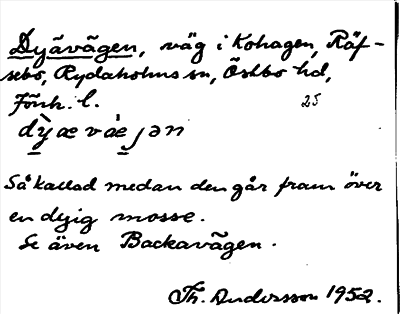 Dyävägen, väg i Kohagen, Räf-
sebo, Rydaholms sn, Östbo hd,
Jönk. l. 25
dỳæ væ̀ ȷən
Så kallad medan den går fram över
en dyig mosse.
Se även Backavägen.
Th. Andersson 1952.